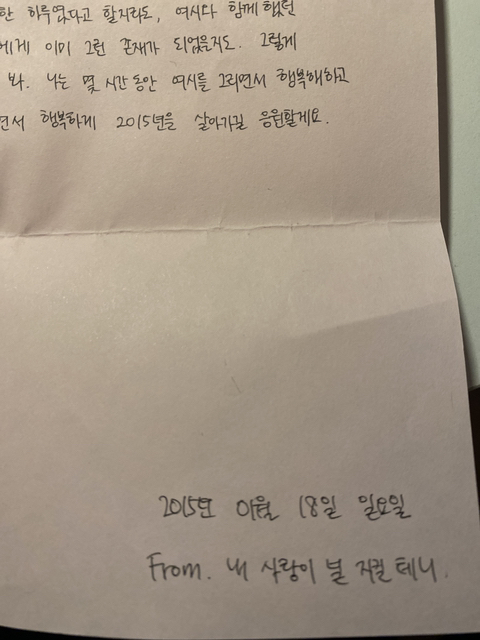 한 하루였다고 할지라도, 여시다 함께했던
에게 이미 그런 존재가 되었을지도. 그렇게
봐. 나는 몇 시간 동안 여시를 그리면서 행복해하고
면서 행복하게 2015년을 살아가길 응원할게요.
2015년 01월 18일 일요일
From. 내 사랑이 널 지킬 테니.